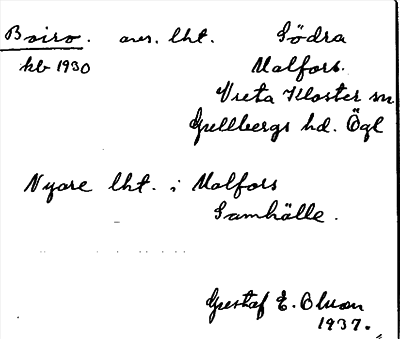 Boiro. avs. lht. Södra
kb 1930 Malfors.
Vreta Kloster sn
Gullbergs hd. Ögl
Nyare lht. i Malfors
Samhälle.
Gustaf E. Olson
1937.